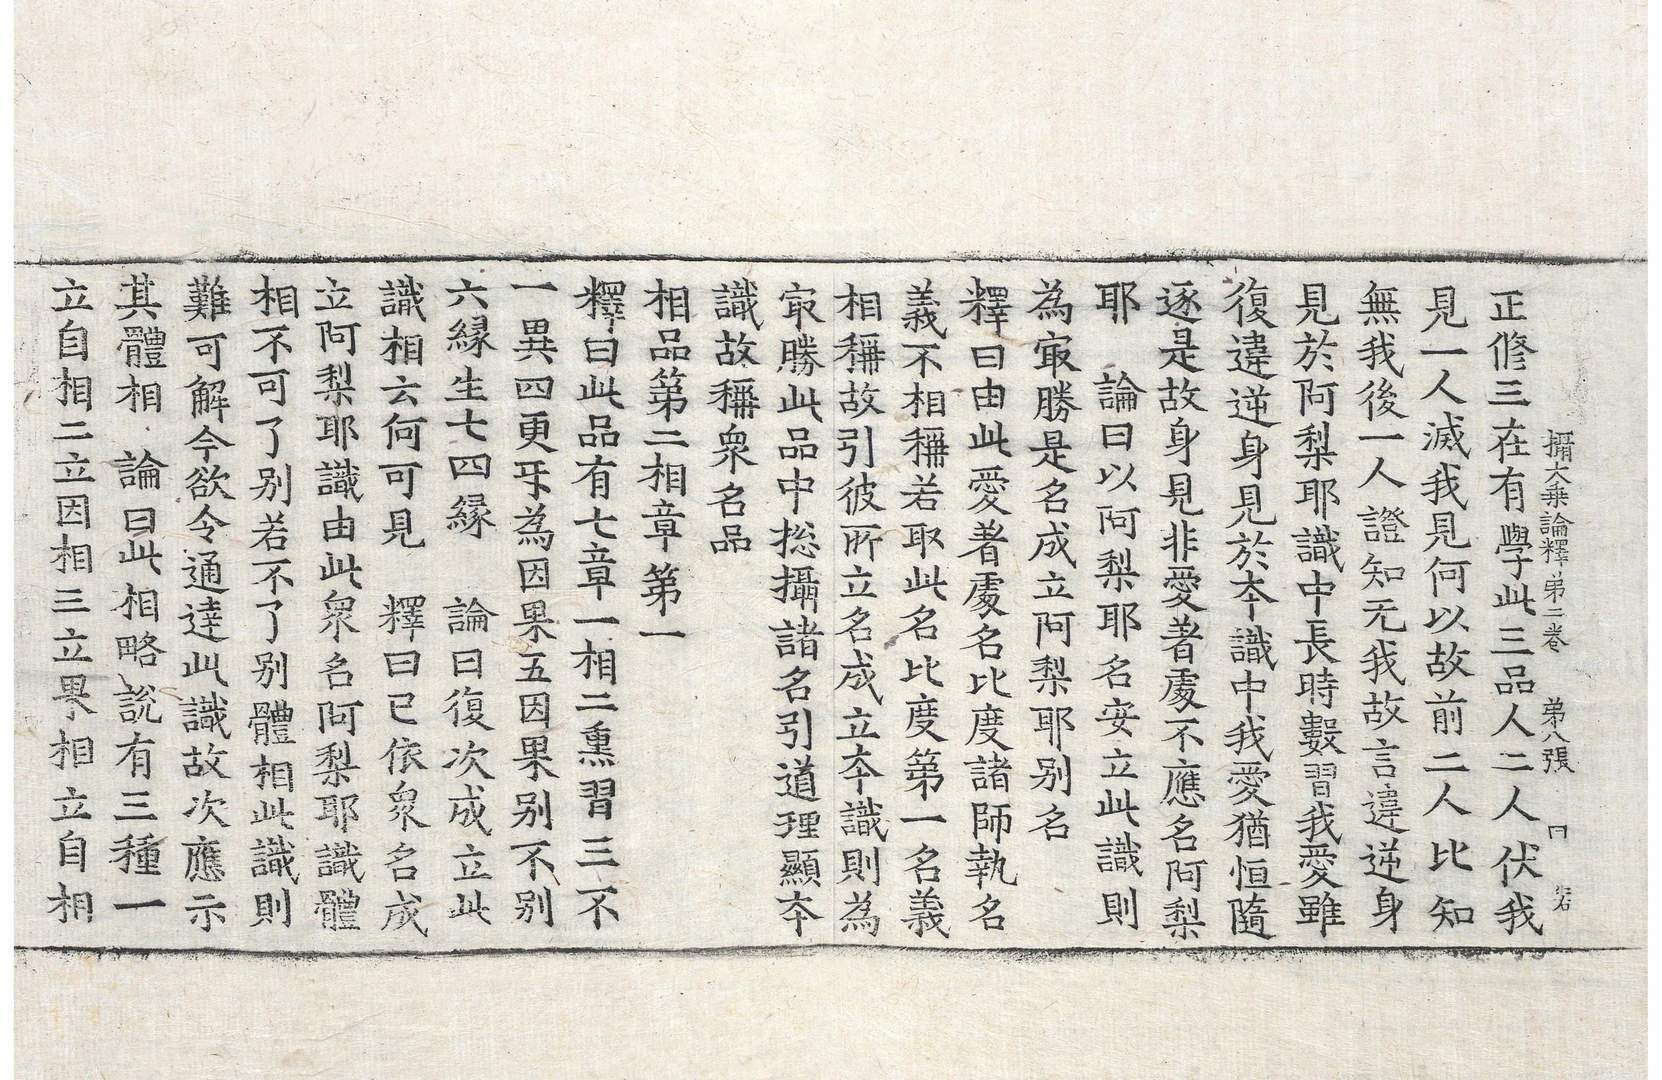 攝大乗論釋第二卷　第八張　曰　㞐石
正修三在有學此三品人二人伏我
見一人滅我見何以故前二人比知
無我後一人證知无我故言違逆身
見於阿梨耶識中長時數習我愛雖
復違逆身見於夲識中我愛猶恒隨
逐是故身見非愛著處不應名阿梨
耶　論曰以阿梨耶名安立此識則
為㝡勝是名成立阿梨耶别名
釋曰由此愛著處名比度諸師執名
義不相稱若取此名比度第一名義
相稱故引彼所立名成立夲識則為
㝡勝此品中揔攝諸名引道理顯夲
識故稱衆名品
相品第二相章第一
釋曰此品有七章一相二熏習三不
一異四更㸦為因果五因果别不别
六緣生七四緣　論曰復次成立此
識相云何可見　釋曰已依衆名成
立阿梨耶識由此衆名阿梨耶識體
相不可了别若不了别體相此識則
難可解今欲令通達此識故次應示
其體相　論曰此相略說有三種一
立自相二立因相三立果相立自相